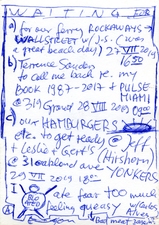 WAITING FOR
a) for our ferry ROCKAWAYS →
WALLSTREET w/ J.S. (
a great beach day) 27 VIII 2019
16:50
b) Terence Sanders
to call me back re. my
BOOK 1987-2017 + PULSE
MIAMI
@ 319 Grand 28 VIII 2019
c) our HAMBURGERS
etc. to get ready @ Jeff
+ Leslie + Gerri's (Hirshorn)
@ 31 Oakland ave YONKERS
29 VIII 2019 18:00
I ate far too much
feeling queasy w/ Carlos
that meat